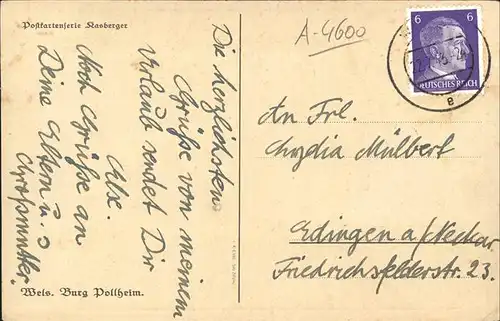 Postkartenserie Kasberger
Die herzlichsten
Grüße von meinem
Urlaub sendet Dir
Alx.
Noch Grüße an
Deine Eltern u. s
Großmutter.
Wels. Burg Pollheim.
A-4600
6 6
DEUTSCHES REICH
e
An Frl.
Lydia Mülbert
Edingen a/Neckar
Friedrichsfelderstr. 23.